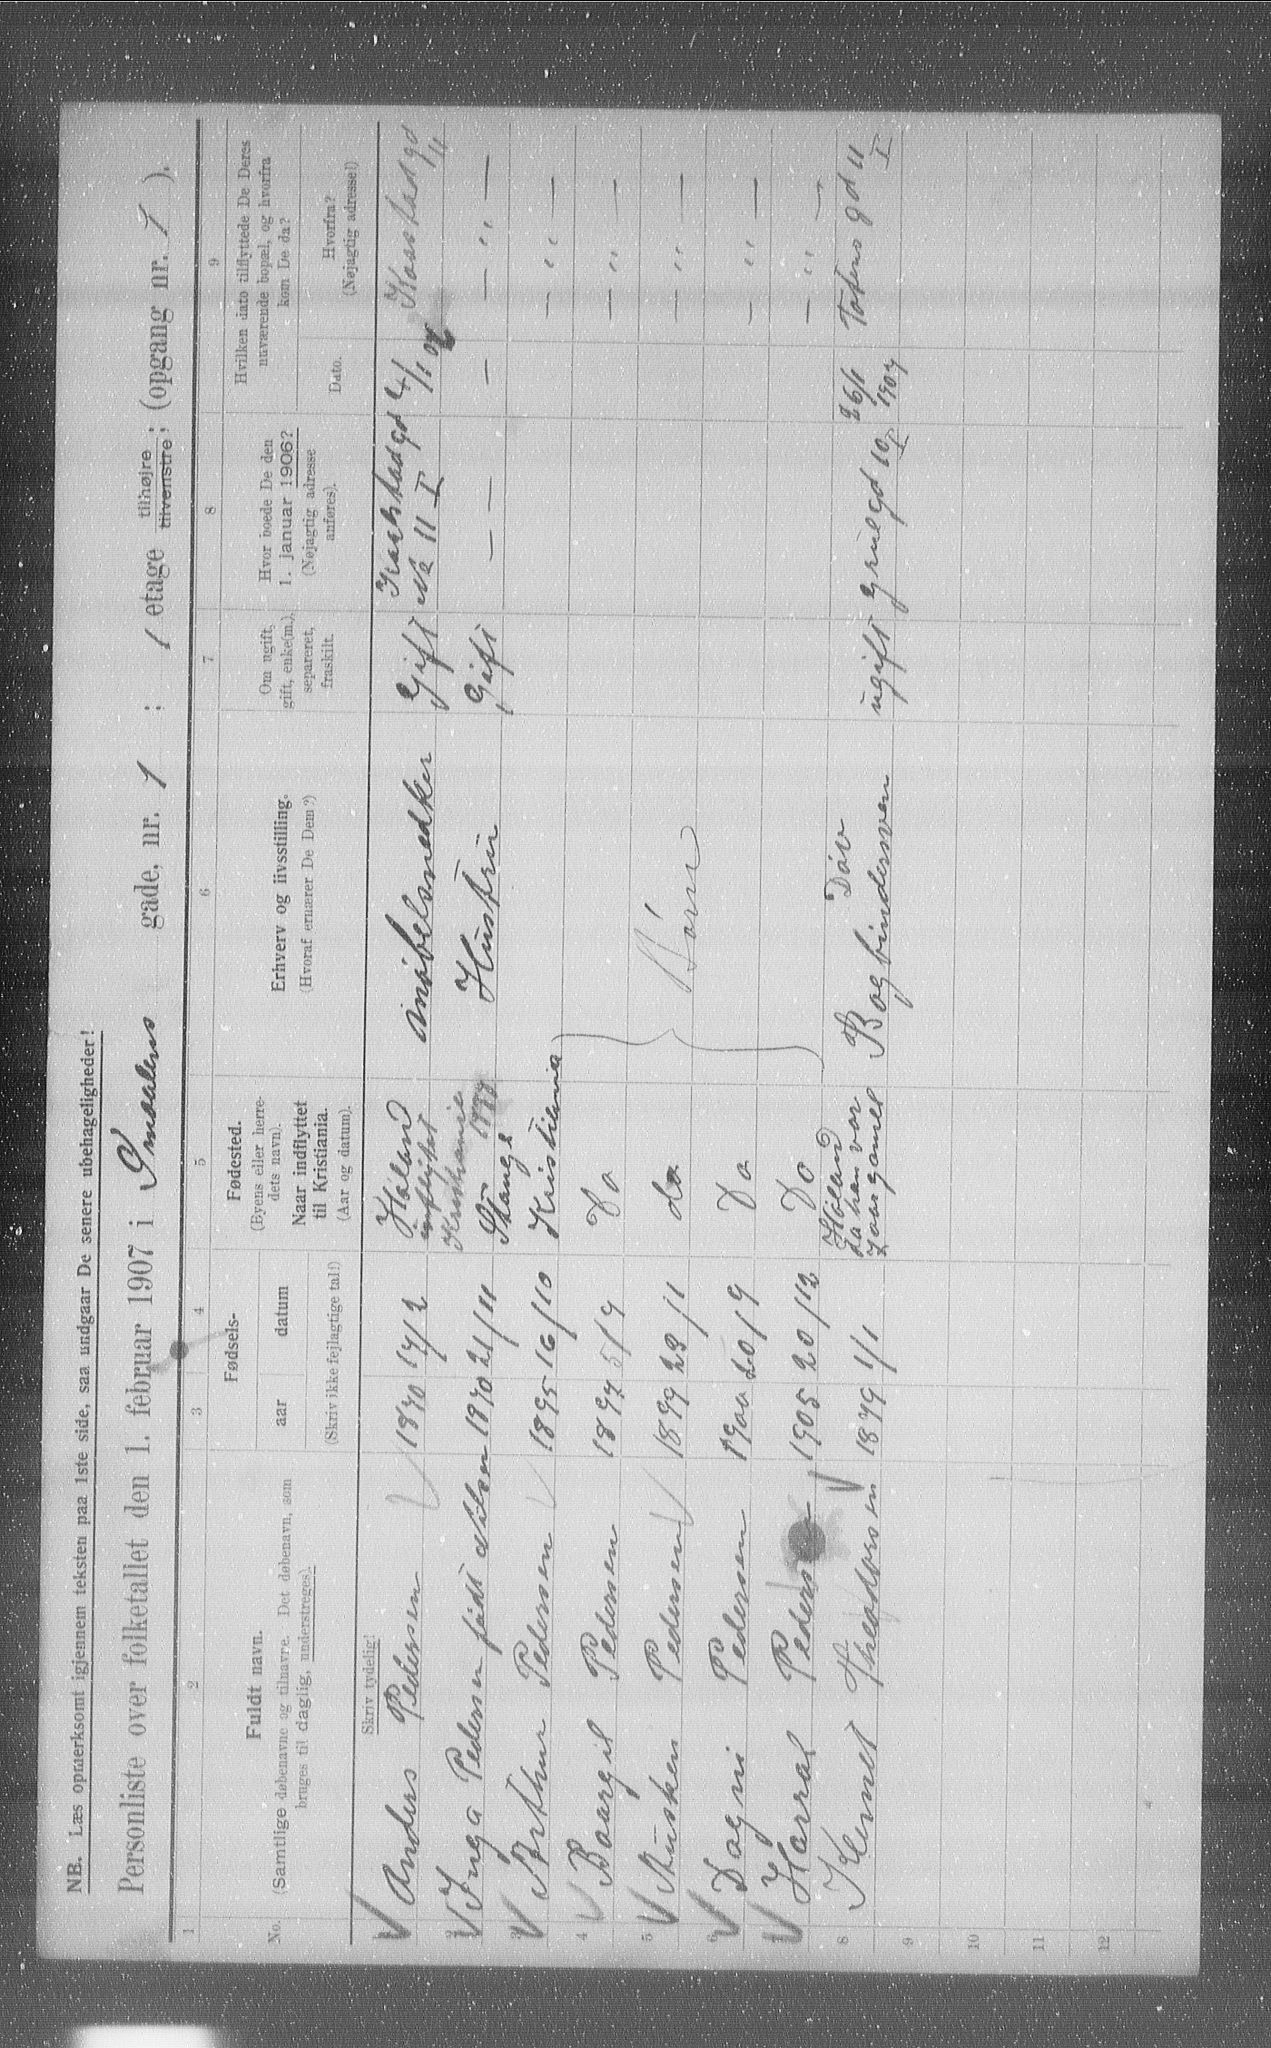 NB. Læs opmerksomt igjennem teksten paa 1ste side, saa undgaar De senere ubehageligheder!
Personliste over folketallet den 1. februar 1907 i Smaalens gade, nr. 1 ; 1 etage tilhøjre tilvenstre; (opgang nr. 1 ).
1 2 3 4 5 6 7 8 9
No.
Fuldt navn.
(Samtlige døbenavne og tilnavne. Det døbenavn, som
bruges til daglig, understreges).
Fødsels-
aar datum
(Skriv ikke fejlagtige tal!)
Fødested.
(Byens eller herre-
dets navn).
Naar indflyttet
til Kristiania.
(Aar og datum).
Erhverv og livsstilling.
(Hvoraf ernærer De Dem?)
Om ugift,
gift, enke(m.),
separeret,
fraskilt.
Hvor boede De den
1. januar 1906?
(Nøjagtig adresse
anføres).
Hvilken dato tilflyttede De Deres
nuværende bopæl, og hvorfra
kom De da?
Dato.
Hvorfra?
(Nøjagtig adresse!)
Skriv tydelig!
Anders Pedersen 1870 17/2 Høland indflyttet Kristiania Møbelsnedker Gift No 11 I 4/1 07
2 Inga Pedersen født Nilsen 1870 21/11 Stange Hustru Gift — — — — „ —
3 Arthur Pedersen 1895 16/10 Kristiania — „ —
4 Pedersen 1897 5/9 Do — „ —
5 Pedersen 1899 23/11 do Børn — „ —
6 Dagni Pedersen 1900 20/9 Do — „ —
7 Harral Pedersen 1905 20/12 Do — „ —
8 Klemet Theodorsen 1879 1/1 Høland da han var aar gamel Døv Bogbindersven ugift 10 I 26/1 1907 Totens gd 11 I
9
10
11
12